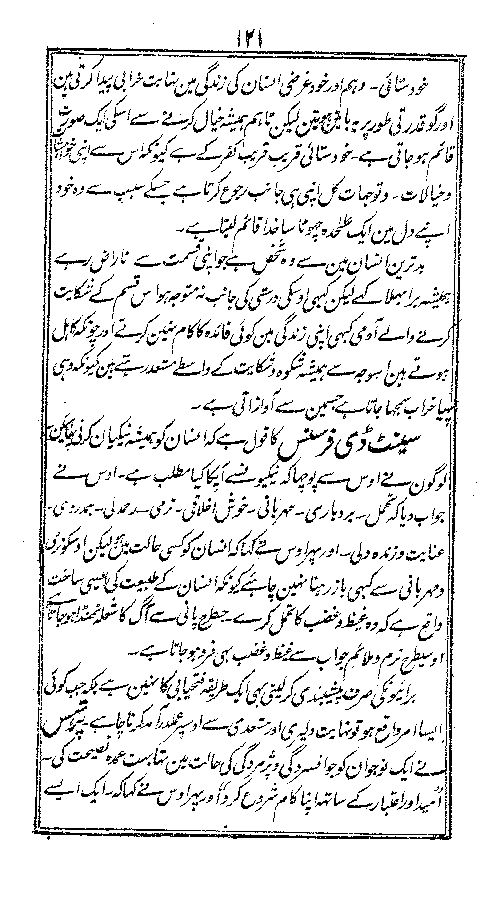 ۱۲۱
خودستائی - وہم اور خودغرضی انسان کی زندگی مین نہایت خرابی پیدا کرتی ہین
اور گو قدرتی طور پر یہ باتین ہوتین لیکن تاہم ہمیشہ خیال کرنے سے اسکی ایک صورت
قائم ہوجاتی ہے - خودستائی قریب قریب کفر کے ہے کیونکہ اس سے اپنی خواہشات
و خیالات - و توجہات کل اپنی ہی جانب رجوع کرتا ہے جسکے سبب سے وہ خود
اپنے دل مین ایک علٰحدہ چھوٹا سا خدا قائم کرلیتا ہے -
بدترین انسان مین سے وہ شخص ہے جو اپنی قسمت سے ناراض رہے
ہمیشہ برا بھلا کہے لیکن کبھی اوسکی درستی کی جانب نہ متوجہ ہو اس قسم کے شکایت
کرنے والے آدمی کبھی اپنی زندگی مین کوئی فائدہ کا کام نہین کرتے اور چونکہ کاہل
ہوتے ہین اسوجہ سے ہمیشہ شکوہ و شکایت کے واسطے مستعد رہتے ہین کیونکہ وہی
پہیا خراب سمجھا جاتا ہے جسمین سے آواز آتی ہے -
سینٹ ڈی فرسنس کا قول ہے کہ انسان کو ہمیشہ نیکیان کرنی چاہئین
لوگون نے اوس سے پوچھا کہ نیکیونسے آپکا کیا مطلب ہے - اوس نے
جواب دیا کہ تحمل - بردباری - مہربانی - خوش اخلاقی - نرمی - رحمدلی - ہمدردی -
عنایت و زندہ دلی - اور پھر اوس نے کہا کہ انسان کو کسی حالت مین لیکن
و مہربانی سے کبھی باز رہنا نہین چاہئے کیونکہ انسان کے طبیعت کی ایسی ساخت
واقع ہے کہ وہ غیظ و غضب کا تحمل کرے - جسطرح پانی سے آگ کا شعلہ ٹھنڈا ہوجاتا ہے
اوسیطرح نرم و ملائم جواب سے غیظ و غضب بھی فرو ہوجاتا ہے -
برائیونکی صرف پیشبندی کرلینی بھی ایک طریقہ فتحیابی کا نہین ہے بلکہ جب کوئی
ایسا امر واقع ہو تو نہایت دلیری اور مستعدی سے اوسپر عملدرآمد کرنا چاہے -
نے ایک نوجوان کو جو افسردگی و پژمردگی کی حالت مین تھا بہت عمدہ نصیحت کی -
امید اور اعتبار کے ساتھ اپنا کام شروع کردو اور پھر اوس نے کہا کہ - ایک ایسے